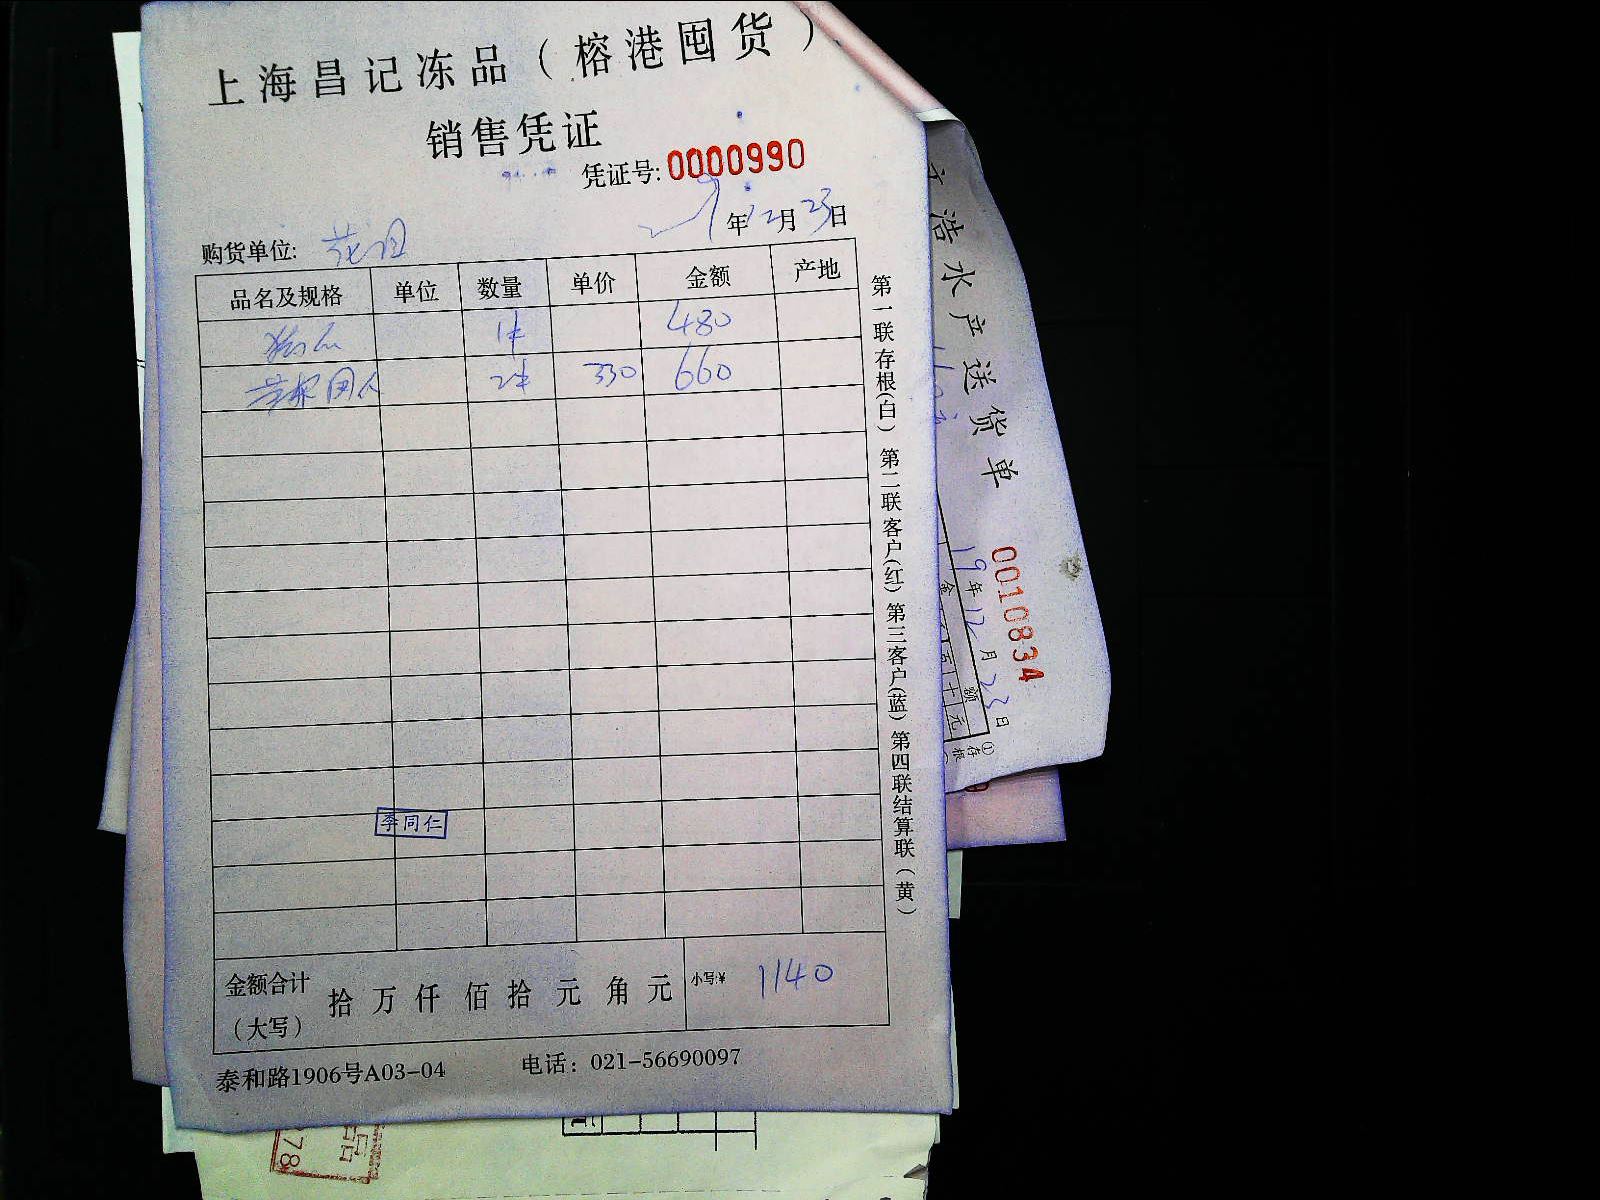 上海昌记冻品（榕港囤货）
销售凭证
凭证号: 0000990
年12月23日
购货单位:
品名及规格 单位 数量 单价 金额 产地
1件 480
2件 330 660
李同仁
金额合计（大写） 拾 万 仟 佰 拾 元 角 元 小写:¥ 1140
泰和路1906号A03-04 电话：021-56690097
第一联存根(白) 第二联客户(红) 第三客户(蓝) 第四联结算联（黄）
浩水产送货单
0010834
19年12月23日
金额
百十元
①存根
78